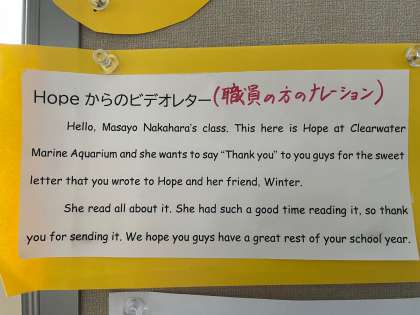 Hope からのビデオレター(職員の方のナレーション)
Hello, Masayo Nakahara's class. This here is Hope at Clearwater
Marine Aquarium and she wants to say "Thank you" to you guys for the sweet
letter that you wrote to Hope and her friend, Winter.
She read all about it. She had such a good time reading it, so thank
you for sending it. We hope you guys have a great rest of your school year.